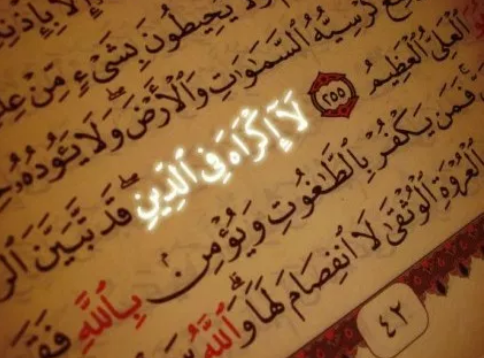 إِلَّا بِإِذْنِهِ
وَلَا يُحِيطُونَ بِشَىْءٍ مِّنْ عِلْمِ
كُرْسِيُّهُ ٱلسَّمَٰوَٰتِ وَٱلْأَرْضَ ۖ وَلَا يَـُٔودُهُۥ
ٱلْعَلِىُّ ٱلْعَظِيمُ ٢٥٥ لَآ إِكْرَاهَ فِى ٱلدِّينِ ۖ قَد تَّبَيَّنَ
فَمَن يَكْفُرْ بِٱلطَّٰغُوتِ وَيُؤْمِنۢ بِٱللَّهِ فَقَدِ
ٱلْعُرْوَةِ ٱلْوُثْقَىٰ لَا ٱنفِصَامَ لَهَا ۗ وَٱللَّهُ
٤٢